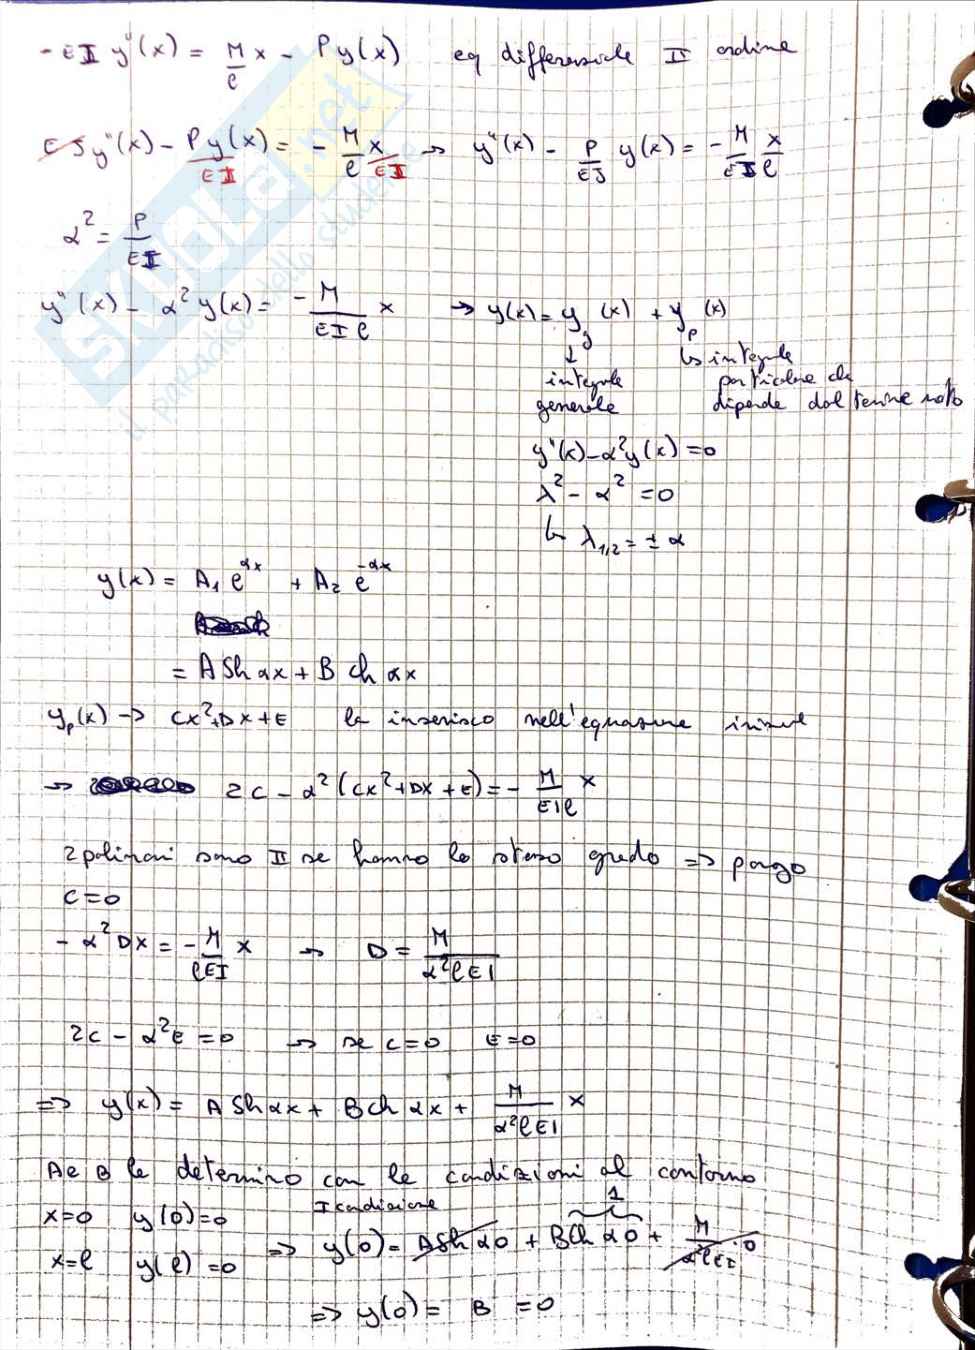 - EI y''(x) = M/ℓ x - P y(x) eq differenziale II ordine
EJ y''(x) - P y(x)/EI = - M/ℓ x/EI → y''(x) - P/EJ y(x) = - M/EI x/ℓ
α² = P/EI
y''(x) - α² y(x) = - M/EIℓ x → y(x) = y_g (x) + y_p (x)
↓ ↳ integrale
integrale particolare che
generale dipende dal termine noto
y''(x) - α² y(x) = 0
λ² - α² = 0
↳ λ1,2 = ± α
y(x) = A₁ e^αx + A₂ e^-αx
= A Sh αx + B ch αx
y_p(x) → Cx² + Dx + E la inserisco nell'equazione iniziale
→ 2C - α² (Cx² + Dx + E) = - M/EIℓ x
2 polinomi sono II se hanno lo stesso grado ⇒ pongo
C = 0
- α² Dx = - M/ℓEI x → D = M/α²ℓEI
2C - α² E = 0 → se C = 0 E = 0
⇒ y(x) = A Sh αx + B ch αx + M/α²ℓEI x
A e B le determino con le condizioni al contorno
I condizione 1
x=0 y(0)=0 ⇒ y(0) = A Sh α0 + B Ch α0 + M/α²ℓEI · 0
x=ℓ y(ℓ)=0
⇒ y(0) = B = 0
SKUOLA.net
il paradiso dello studente